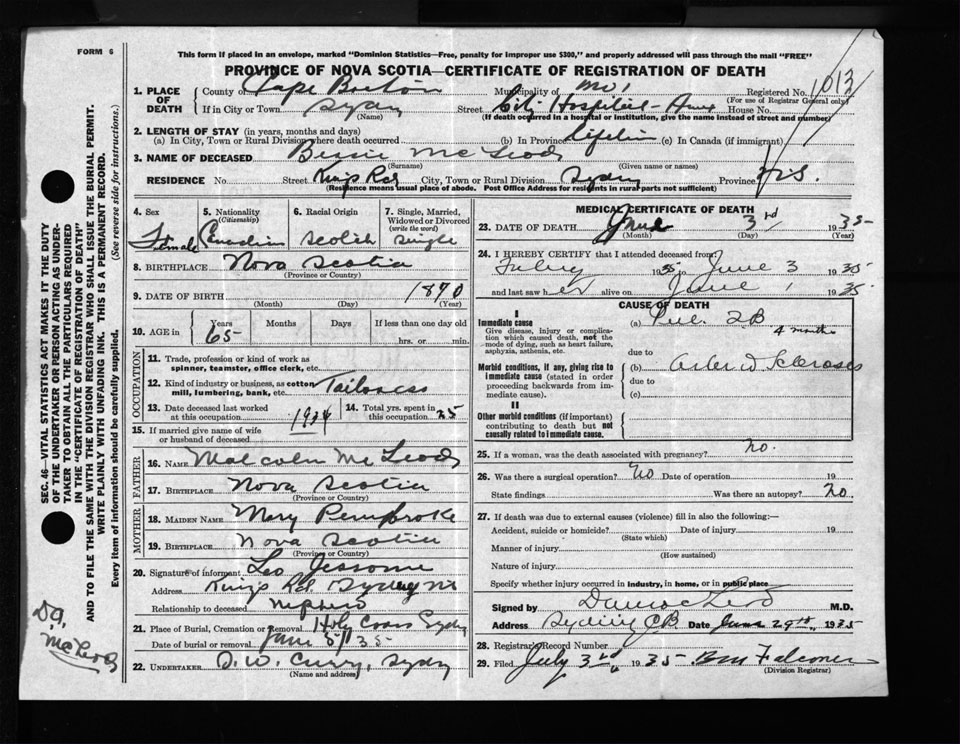 FORM 6
This form if placed in an envelope, marked "Dominion Statistics—Free, penalty for improper use $300," and properly addressed will pass through the mail "FREE"
PROVINCE OF NOVA SCOTIA—CERTIFICATE OF REGISTRATION OF DEATH
1. PLACE OF DEATH
County of Cape Breton Municipality of Registered No. 1013
(For use of Registrar General only)
If in City or Town Sydney Street City Hospital - Annex House No.
(Name) (If death occurred in a hospital or institution, give the name instead of street and number)
2. LENGTH OF STAY (in years, months and days)
(a) In City, Town or Rural Division where death occurred (b) In Province Lifetime (c) In Canada (if immigrant)
3. NAME OF DECEASED Bessie McLeod
(Surname) (Given name or names)
RESIDENCE No Street Kings Rd City, Town or Rural Division Sydney Province N.S.
(Residence means usual place of abode. Post Office Address for residents in rural parts not sufficient)
4. Sex Female
5. Nationality (Citizenship) Canadian
6. Racial Origin Scotch
7. Single, Married, Widowed or Divorced (write the word) Single
8. BIRTHPLACE Nova Scotia
(Province or Country)
9. DATE OF BIRTH 1870
(Month) (Day) (Year)
10. AGE in Years Months Days If less than one day old
65 hrs. or min.
OCCUPATION
11. Trade, profession or kind of work as spinner, teamster, office clerk, etc.
12. Kind of industry or business, as cotton mill, lumbering, bank, etc. Tailoress
13. Date deceased last worked at this occupation 1934
14. Total yrs. spent in this occupation 25
15. If married give name of wife or husband of deceased
FATHER
16. NAME Malcolm McLeod
17. BIRTHPLACE Nova Scotia
(Province or Country)
MOTHER
18. MAIDEN NAME Mary Pembroke
19. BIRTHPLACE Nova Scotia
(Province or Country)
20. Signature of informant Leo Jessome
Address Kings Rd. Sydney NS
Relationship to deceased nephew
21. Place of Burial, Cremation or Removal Holy Cross Sydney
Date of burial or removal June 5/35
22. UNDERTAKER D.W. Curry, Sydney
(Name and address)
MEDICAL CERTIFICATE OF DEATH
23. DATE OF DEATH June 3rd 1935
(Month) (Day) (Year)
24. I HEREBY CERTIFY that I attended deceased from
1935 to June 3 1935
and last saw her alive on June 1 1935
CAUSE OF DEATH
I
Immediate cause
Give disease, injury or complication which caused death, not the mode of dying, such as heart failure, asphyxia, asthenia, etc.
(a) Pul. TB 4 months
due to
Morbid conditions, if any, giving rise to immediate cause (stated in order proceeding backwards from immediate cause).
(b) Sclerosis
due to
(c)
II
Other morbid conditions (if important) contributing to death but not causally related to immediate cause.
25. If a woman, was the death associated with pregnancy? No.
26. Was there a surgical operation? No Date of operation 19
State findings Was there an autopsy? No.
27. If death was due to external causes (violence) fill in also the following:—
Accident, suicide or homicide? Date of injury 19
(State which)
Manner of injury
(How sustained)
Nature of injury
Specify whether injury occurred in industry, in home, or in public place
Signed by M.D.
Address Sydney CB Date June 29th, 1935
28. Registrar's Record Number
29. Filed July 3rd 1935 Falconer
(Division Registrar)
SEC. 46—VITAL STATISTICS ACT MAKES IT THE DUTY OF THE UNDERTAKER OR PERSON ACTING AS UNDERTAKER TO OBTAIN ALL THE PARTICULARS REQUIRED IN THE "CERTIFICATE OF REGISTRATION OF DEATH" AND TO FILE THE SAME WITH THE DIVISION REGISTRAR WHO SHALL ISSUE THE BURIAL PERMIT.
WRITE PLAINLY WITH UNFADING INK. THIS IS A PERMANENT RECORD.
Every item of information should be carefully supplied. (See reverse side for instructions.)
McLeod